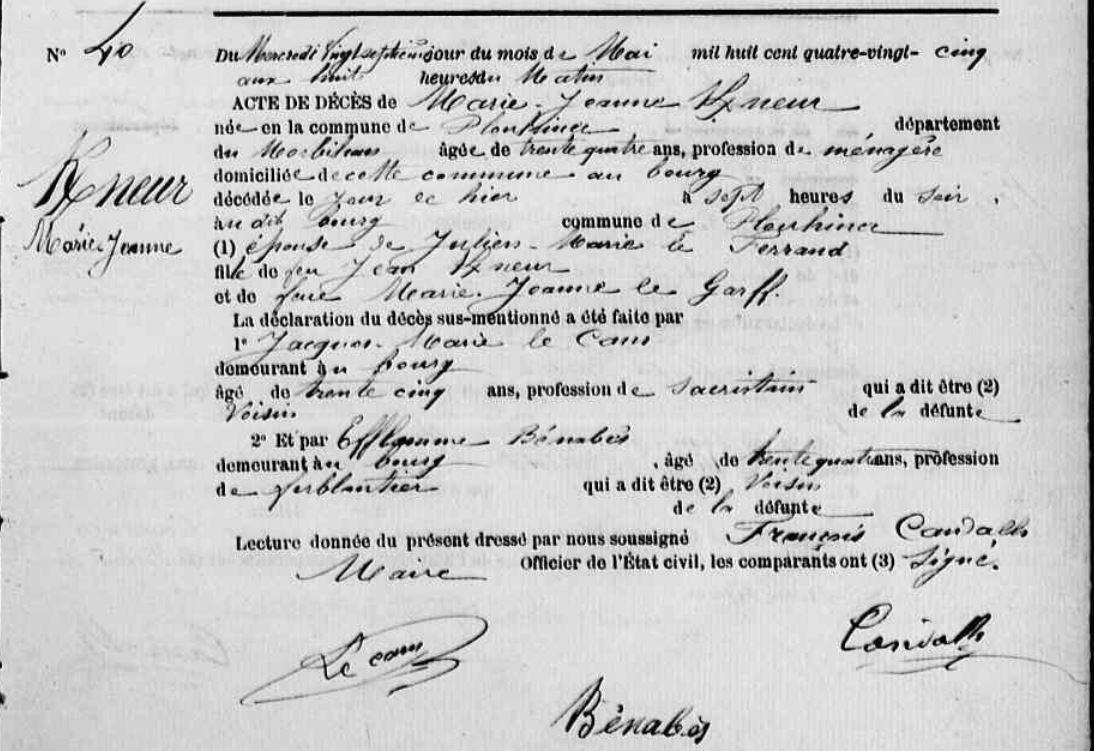 N° 40
Du Mercredi Vingt sept jour du mois de Mai mil huit cent quatre-vingt- cinq
aux huit heures du Matin
ACTE DE DÉCÈS de Marie-Jeanne Kneur
née en la commune de Plouhinec département
du Morbihan âgée de trente quatre ans, profession de ménagère
domiciliée de cette commune au bourg
décédée le Jour de hier à Sept heures du Soir
au dit bourg commune de Plouhinec
(1) épouse de Julien-Marie le Ferrand
fille de feu Jean Kneur
et de feue Marie-Jeanne le Garff.
La déclaration du décès sus-mentionné a été faite par
1° Jacques-Marie le Cam
demeurant au bourg
âgé de trente cinq ans, profession de Sacristain qui a dit être (2)
Voisin de la défunte
2° Et par Efflamme Bénabès
demeurant au bourg âgé de trente quatre ans, profession
de ferblantier qui a dit être (2) Voisin
de la défunte
Lecture donnée du présent dressé par nous soussigné François
Maire Officier de l'État civil, les comparants ont (3) Signé.
Kneur
Marie-Jeanne
Le cam
Bénabès